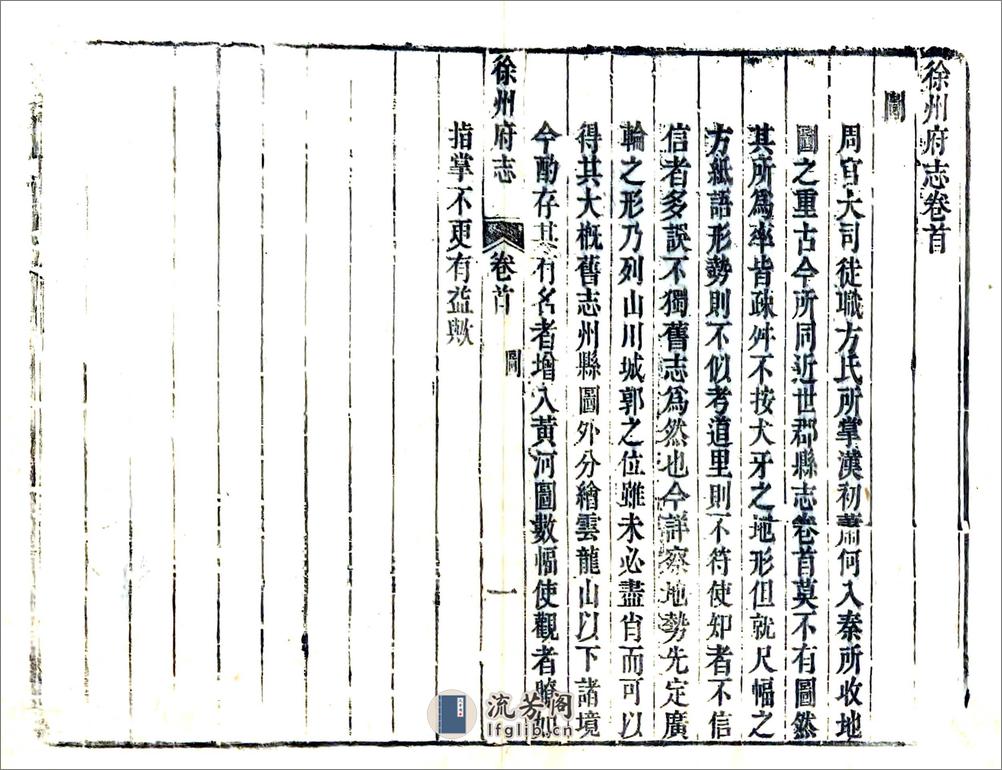 徐州府志卷首
圖
周官大司徒職方氏所掌漢初蕭何入秦所收地
圖之重古今所同近世郡縣志卷首莫不有圖然
其所為率皆疎舛不按犬牙之地形但就尺幅之
方紙語形勢則不似考道里則不符使知者不信
信者多誤不獨舊志為然也今詳察地勢先定廣
輪之形乃列山川城郭之位雖未必盡肖而可以
得其大概舊志州縣圖外分繪雲龍山以下諸境
今酌存其有名者增入黃河圖數幅使觀者瞭如
徐州府志 卷首 圖 一
指掌不更有益歟
流芳阁
lfglib.cn